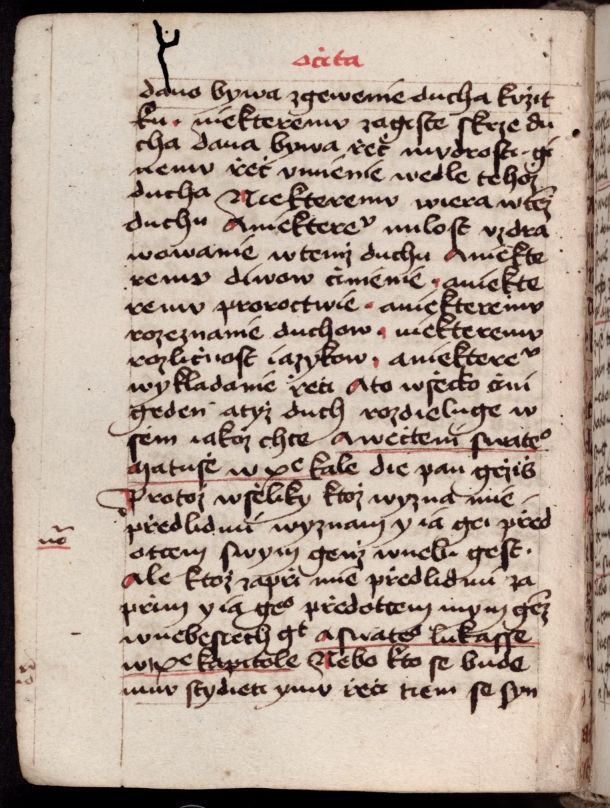 očita
dano bywa zgewenie ducha kvžit
ku. niekteremv zagiste skrze du
cha dana bywa řeč mvdrosti. gi
nemv řeč vmienie wedle tehož
ducha Niekteremv wiera wtēž
duchu Aniektereᵛ milost vzdra
wowanie wtemž duchu Aniekte
remv diwow činienie. aniekte
remv proroctwie. aniekteremv
rozeznanie duchow. niekteremv
rozličnost iazykow. aniektereᵛ
wykladanie řeči Ato wšecko čini
geden atyž duch rozdieluge w
sem iakož chce Awečtenij swateᵒ
Matuše w xᵉ kale die pan gežiš
Protož wšeliky ktož wyzna mie
předlidmi wyznam y ia gei před
otcem swym genž wnebi gest.
Ale ktož zapři mie předlidmi za
přim y ia geᵒ předotcem mym gēž
wnebesiech gt Aswateᵒ lukasse
kapitole Nebo kto se bude
mnv stydieti ymv řeči tiem se syn